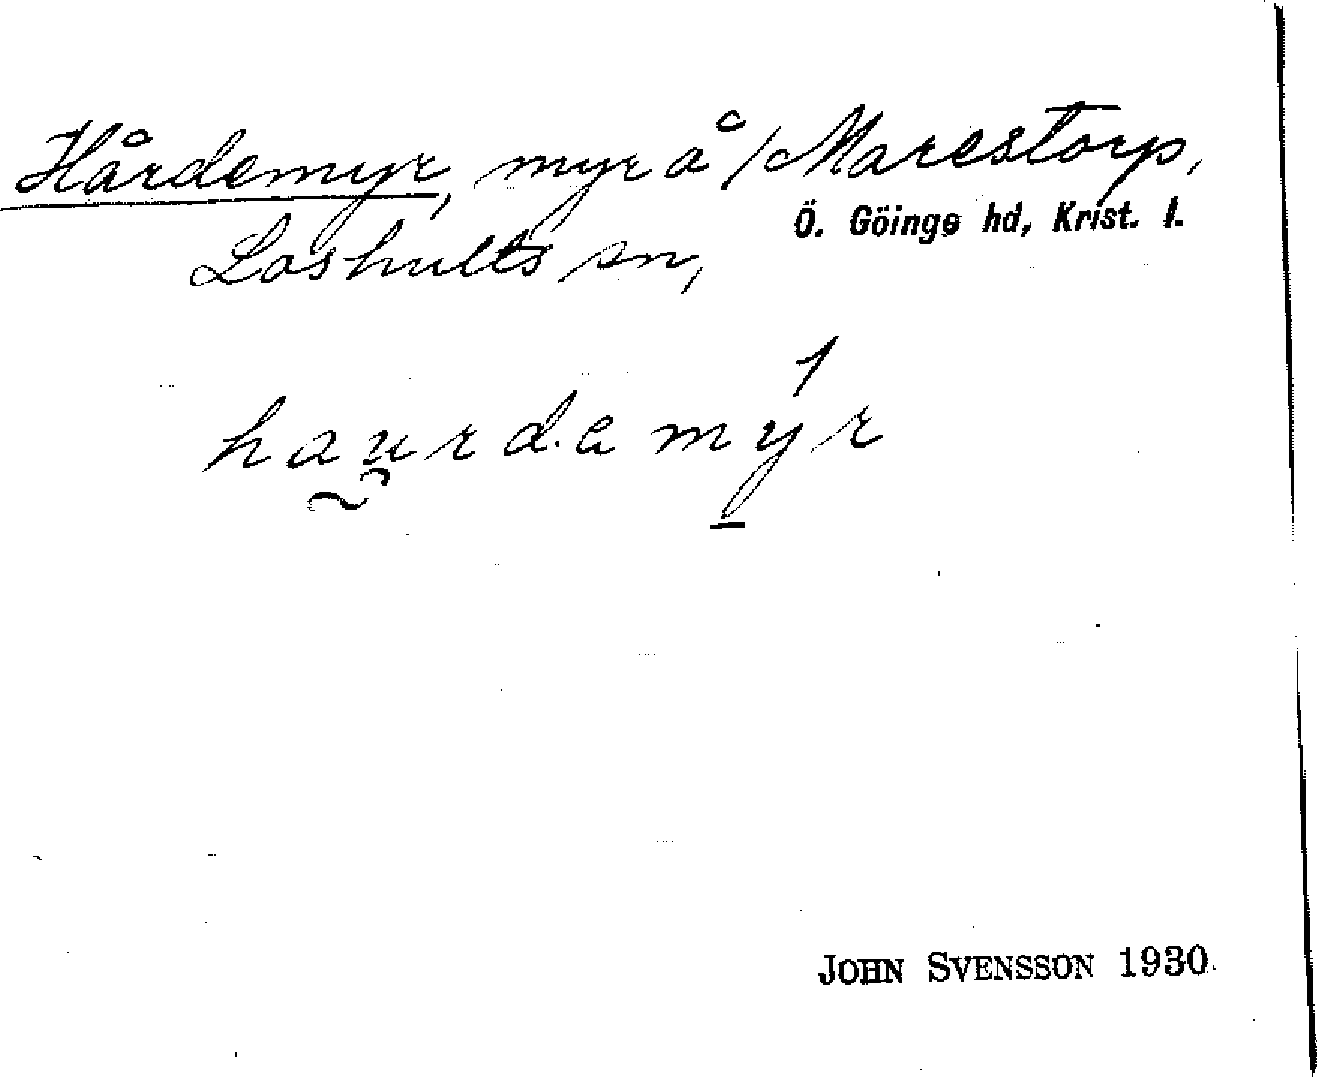 Hårdemyr, myr å /Marestorp,
Ö. Göinge hd, Krist. l.
Loshults sn,
haurdemýr
JOHN SVENSSON 1930.